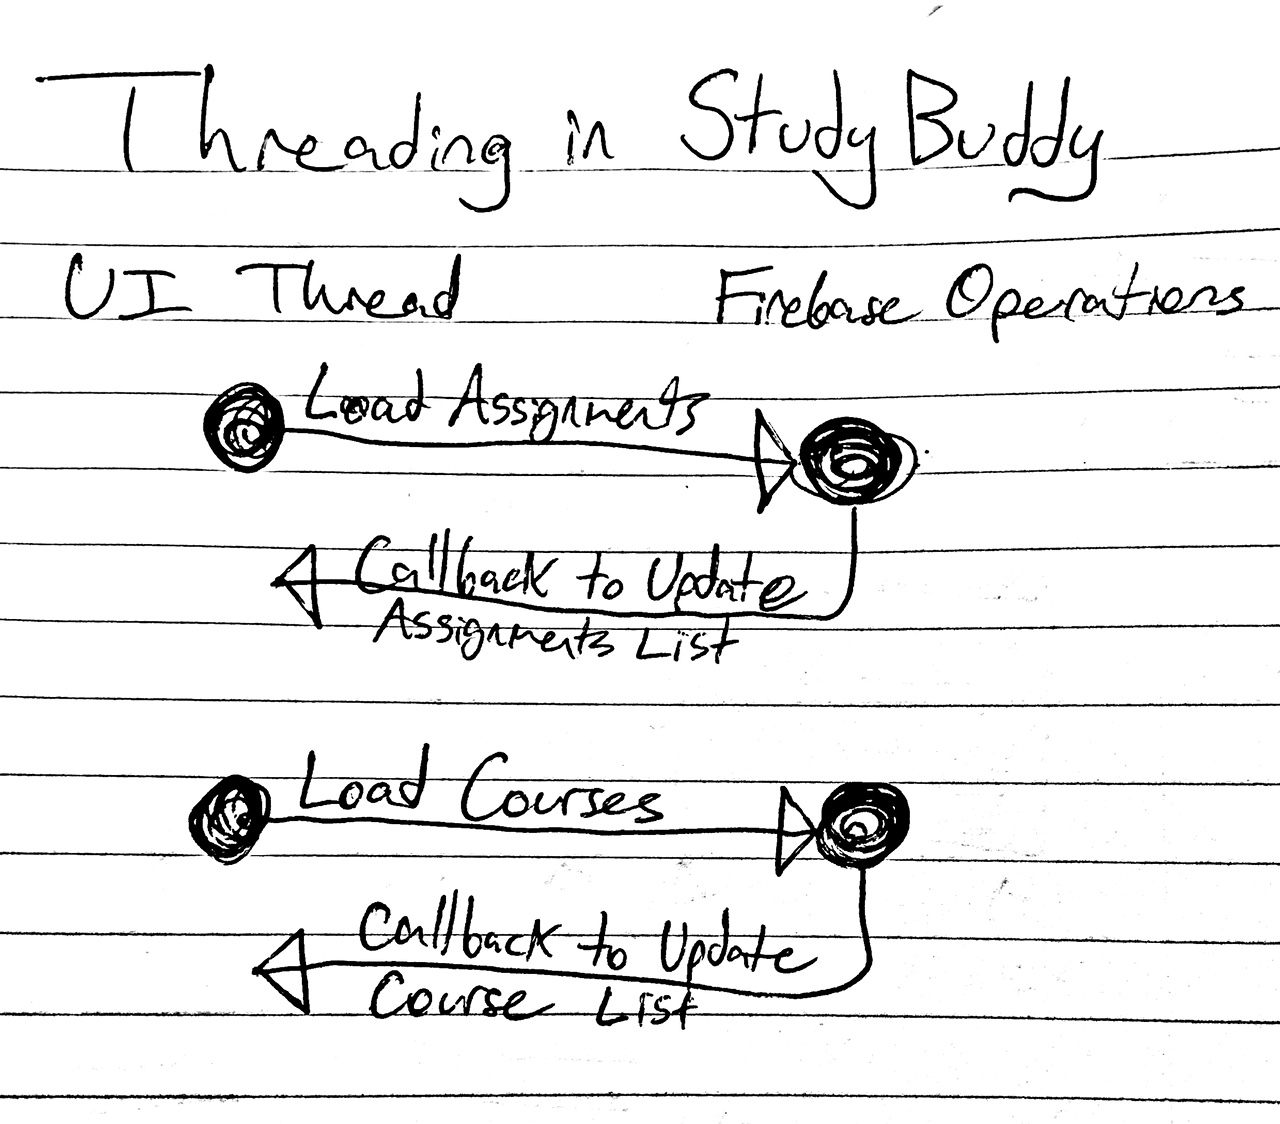 Threading in Study Buddy
UI Thread Firebase Operations
Load Assignments
Callback to Update
Assignments List
Load Courses
Callback to Update
Course List